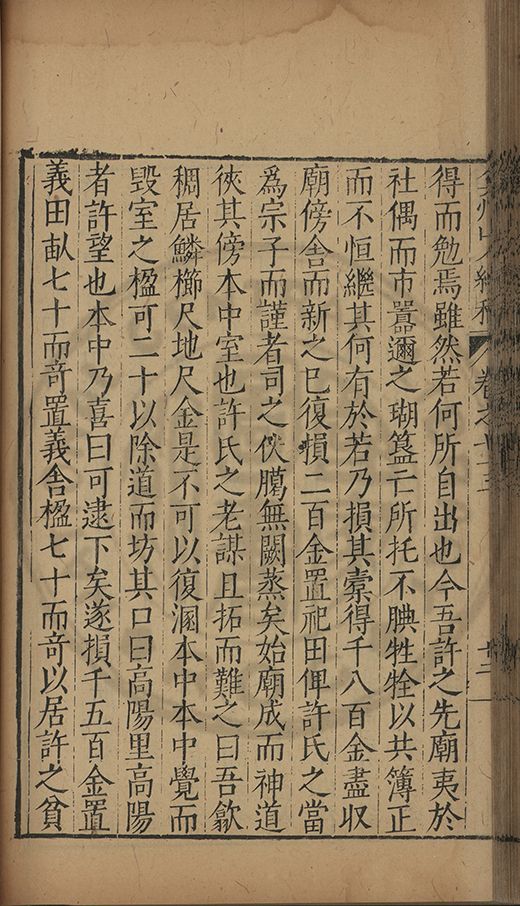 得而勉焉雖然若何所自出也今吾許之先廟夷於
社偶而市囂邇之瑚簋亡所托不腆牲牷以共簿正
而不恒繼其何有於若乃損其槖得千八百金盡収
廟傍舍而新之已復損二百金置祀田俾許氏之當
為宗子而謹者司之伏臈無闕蒸矣始廟成而神道
狹其傍本中室也許氏之老謀且拓而難之曰吾歙
稠居鱗櫛尺地尺金是不可以復溷本中本中覺而
毀室之楹可二十以除道而坊其口曰高陽里高陽
者許望也本中乃喜曰可逮下矣遂損千五百金置
義田畝七十而奇置義舍楹七十而奇以居許之貧